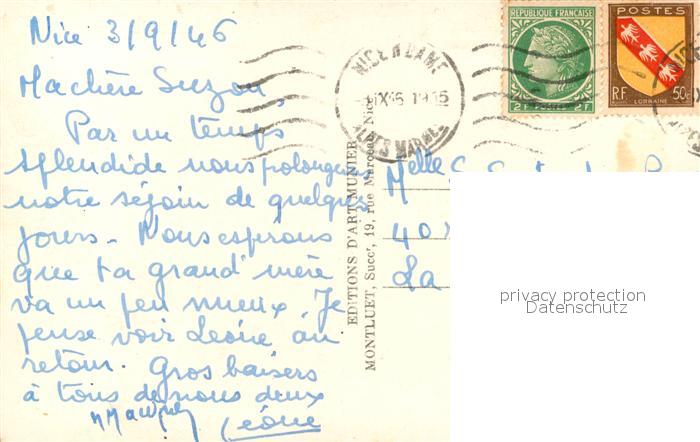 Nice 3/9/46
Ma chère Suzon,
Par un temps
splendide nous prolongeons
notre séjour de quelques
jours. Nous espérons
que ta grand'mère
va un peu mieux Je
pense voir Léone au
retour. Gros baisers
à tous de nous deux
Léone
EDITIONS D'ART MUNIER
MONTLUET, Succr, 19, rue Marceau, Nice
NICE N. DAME
ALPES MARMES
REPUBLIQUE FRANÇAISE
2F 2F
POSTES
LORRAINE
RF 50c
Melle
40
La
privacy protection
Datenschutz